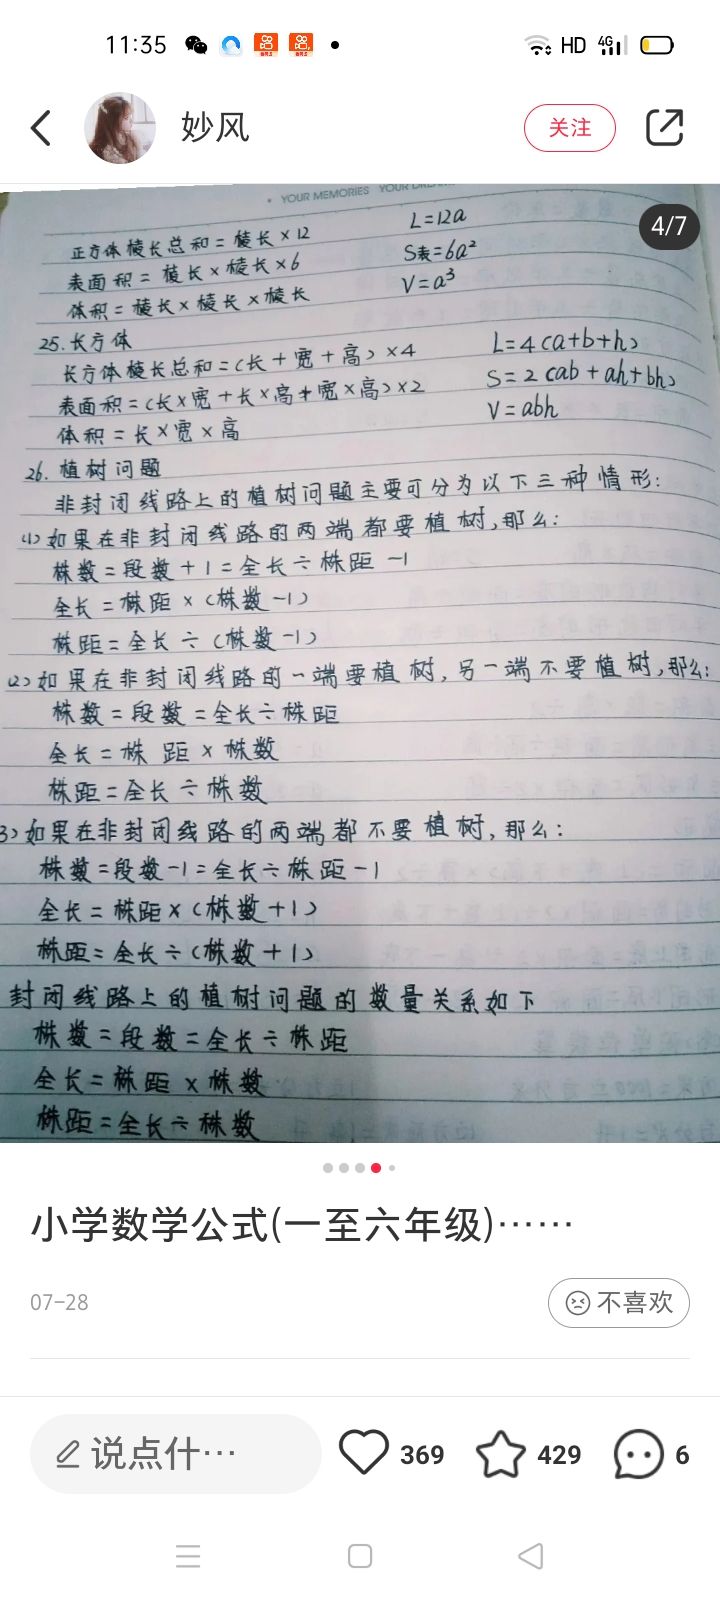 11:35 HD 4G
妙风 关注
4/7
YOUR MEMORIES YOUR
正方体棱长总和=棱长×12 L=12a
表面积=棱长×棱长×6 S表=6a²
体积=棱长×棱长×棱长 V=a³
25.长方体
长方体棱长总和=(长+宽+高)×4 L=4(a+b+h)
表面积=(长×宽+长×高+宽×高)×2 S=2(ab+ah+bh)
体积=长×宽×高 V=abh
26.植树问题
非封闭线路上的植树问题主要可分为以下三种情形:
(1)如果在非封闭线路的两端都要植树,那么:
株数=段数+1=全长÷株距-1
全长=株距×(株数-1)
株距=全长÷(株数-1)
(2)如果在非封闭线路的一端要植树,另一端不要植树,那么:
株数=段数=全长÷株距
全长=株距×株数
株距=全长÷株数
3)如果在非封闭线路的两端都不要植树,那么:
株数=段数-1=全长÷株距-1
全长=株距×(株数+1)
株距=全长÷(株数+1)
封闭线路上的植树问题的数量关系如下
株数=段数=全长÷株距
全长=株距×株数
株距=全长÷株数
小学数学公式(一至六年级)……
07-28 不喜欢
说点什… 369 429 6